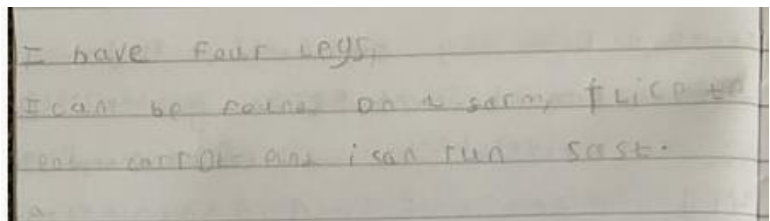 I have four legs,
I can be found on a sarm, I Lice to
ent carrot and i san run sast.